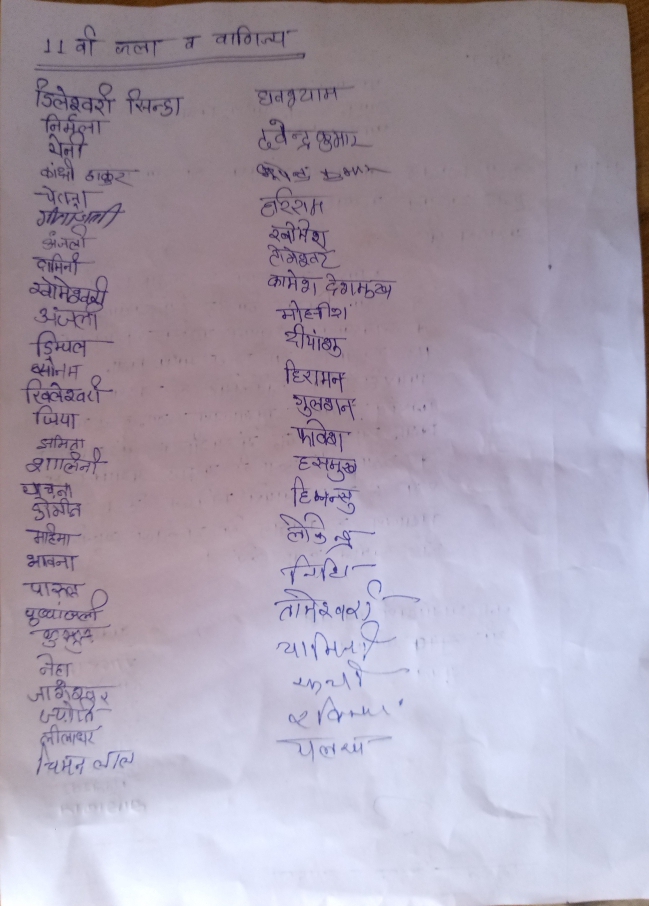 11 वी कला व वाणिज्य
डिलेश्वरी सिन्हा
निर्मला
कांक्षी ठाकुर
चेतना
गीतांजली
अंजली
दामिनी
खोमेश्वरी
अंजली
डिम्पल
सोनम
खिलेश्वरी
जिया
अमिता
शालिनी
महिमा
भावना
पारूल
पुष्पांजली
नेहा
जागेश्वर
ज्योति
लीलाधर
चिमन लाल
घनश्याम
देवेन्द्र कुमार
हरिराम
खोमेश
टोमेश्वर
कामेश देशमुख
मोहनीश
दीपांशु
हिरामन
गुलशन
भावेश
हसमुख
निधि
तामेश्वरी
यामिनी